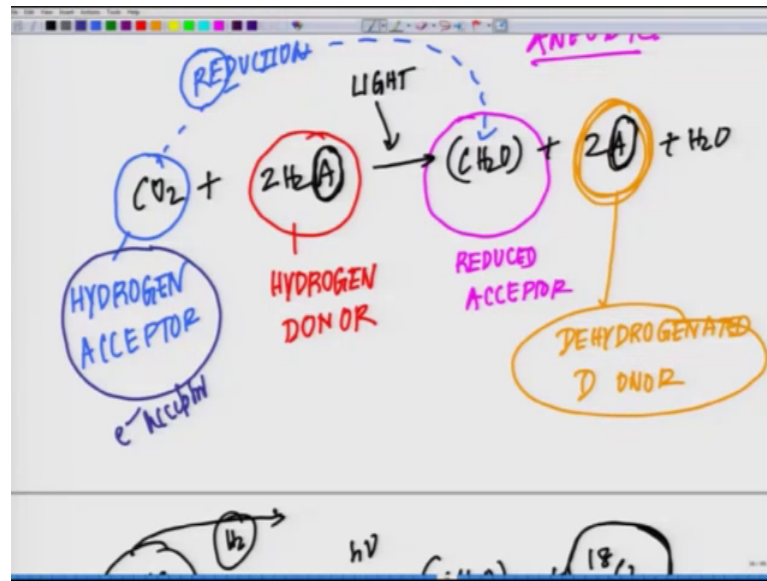 REDUCTION
LIGHT
CO2 + 2H2A → (CH2O) + 2A + H2O
HYDROGEN
ACCEPTOR
HYDROGEN
DONOR
REDUCED
ACCEPTOR
DEHYDROGENATED
DONOR
e- Acceptor
H2
hν